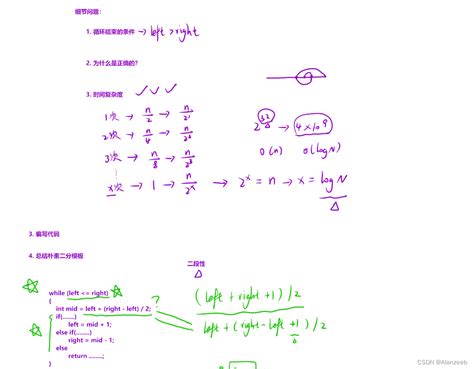 细节问题：
1. 循环结束的条件 → left > right
2. 为什么是正确的?
3. 时间复杂度
1次 → n/2 → n/2^1
2次 → n/4 → n/2^2
3次 → n/8 → n/2^3
x次 → 1 → n/2^x → 2^x = n → x = log N
2^32 → 4×10^9
O(n) O(log N)
3. 编写代码
4. 总结朴素二分模板
二段性
while (left <= right)
{
int mid = left + (right - left) / 2; ?
if(......)
left = mid + 1;
else if(......)
right = mid - 1;
else
return ......;
(left + right + 1) / 2
left + (right - left + 1) / 2
CSDN @Alanzeeb